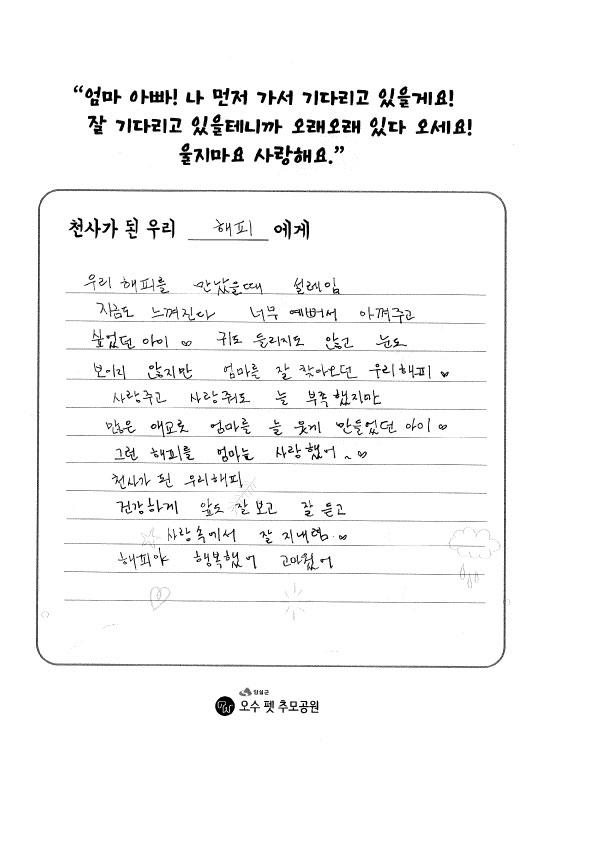 “엄마 아빠! 나 먼저 가서 기다리고 있을게요!
잘 기다리고 있을테니까 오래오래 있다 오세요!
울지마요 사랑해요.”
천사가 된 우리 해피 에게
우리 해피를 만났을때 설레임
지금도 느껴진다 너무 예뻐서 아껴주고
싶었던 아이 ♡ 귀도 들리지도 않고 눈도
보이지 않지만 엄마를 잘 찾아오던 우리해피 ♡
사랑주고 사랑줘도 늘 부족했지만
많은 애교로 엄마를 늘 웃게 만들었던 아이 ♡
그런 해피를 엄마는 사랑했어 ~ ♡
천사가 된 우리해피
건강하게 앞도 잘 보고 잘 듣고
사랑속에서 잘 지내렴 ♡
해피야 행복했어 고마웠어
임실군
오수 펫 추모공원